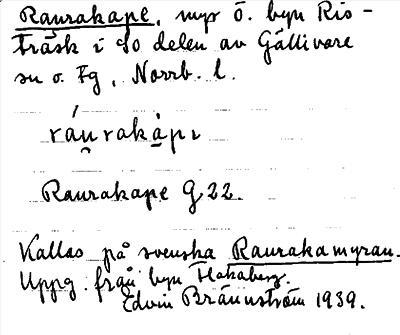 Raurakape, myr ö. byn Ris-
träsk i so delen av Gällivare
sn o. Fg, Norrb. l.
ráu̯rakàpı
Raurakape G 22.
Kallas på svenska Raurakamyran.
Uppg. från byn Hakaberg.
Edvin Brännström 1939.